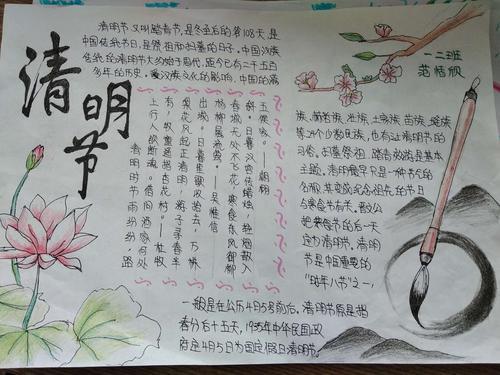 清明节
清明节又叫踏青节,是冬至后的第108天,是
中国传统节日,是祭祖和扫墓的日子。中国汉族
传统的清明节大约始于周代,距今已有二千五百
多年的历史。受汉族文化的影响,中国的满
一二班
范恬欣
族、赫哲族、壮族、土家族、苗族、瑶族
等24个少数民族,也有过清明节的
习俗。扫墓祭祖、踏青郊游是基本
主题。清明最早只是一种节气的
名称,其变成纪念祖先的节日
与寒食节有关。晋文公
把寒食节的后一天
定为清明节。清明
节是中国重要的
“时年八节”之一,
一般是在公历4月5号前后。清明节原是指
春分后十五天,1935年中华民国政
府定4月5日为国定假日清明节。
清明时节雨纷纷,路
上行人欲断魂。借问酒家何处
有,牧童遥指杏花村。——杜牧
梨花风起正清明,游子寻春半
出城。日暮笙歌收拾去,万株
杨柳属流莺。——吴惟信
春城无处不飞花,寒食东风御柳
斜。日暮汉宫传蜡烛,轻烟散入
五侯家。——韩翃